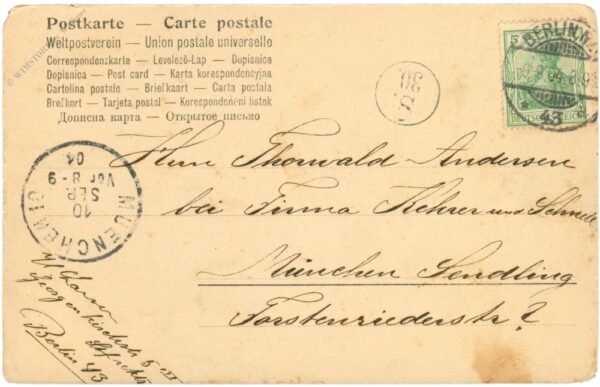 Postkarte — Carte postale
Weltpostverein — Union postale universelle
Correspondenzkarte — Levelező-Lap — Dopisnice
Dopisnica — Post card — Karta korespondencyjna
Cartolina postale — Briefkaart — Carta postala
Brefkort — Tarjeta postal — Korespondenčni listek
Дописна карта — Открытое письмо
5
DEUTSCHES REICH
BERLIN.N.W.
* 43 *
30
MUENCHEN
10
SEP.
Vor 8-9
04
Herrn Thorwald Andersen
bei Firma Kehrer und
München Sendling
Forstenriederstr 2
Georgenkirchstr 5 III
Berlin 43